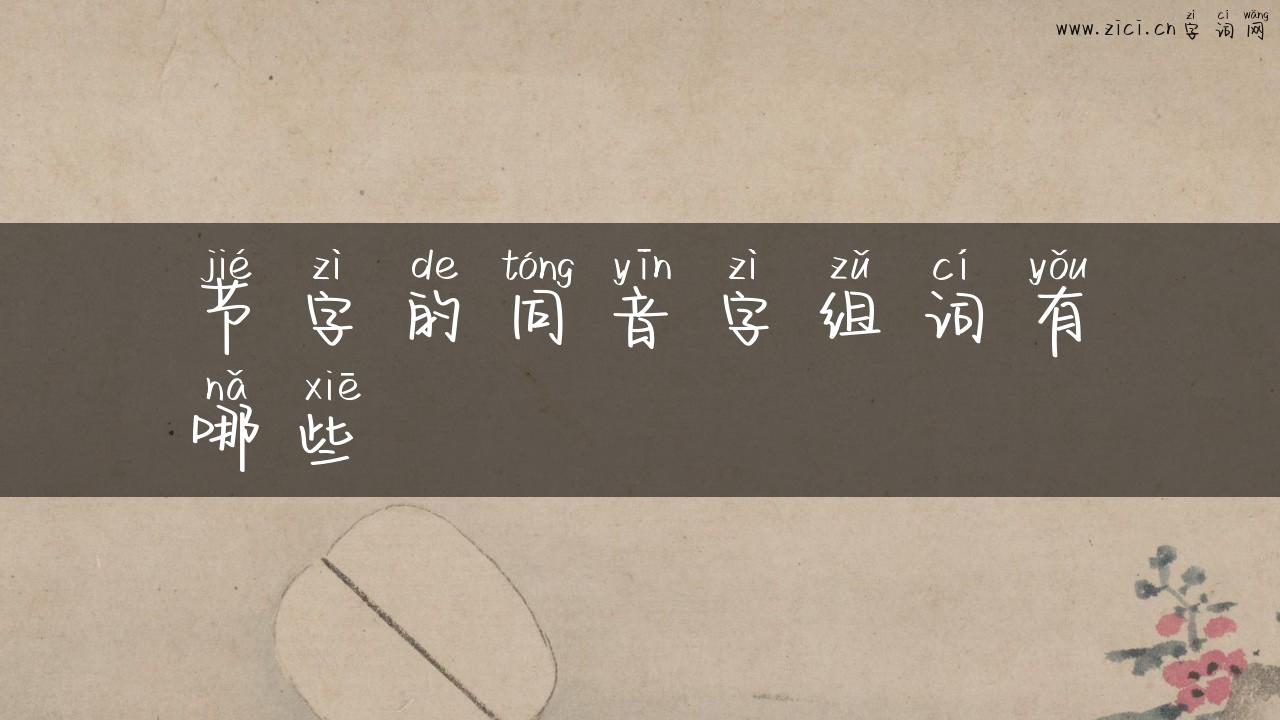 zì cí wǎng
www.zici.cn 字词网
jié zì de tóng yīn zì zǔ cí yǒu
节字的同音字组词有
nǎ xiē
哪些